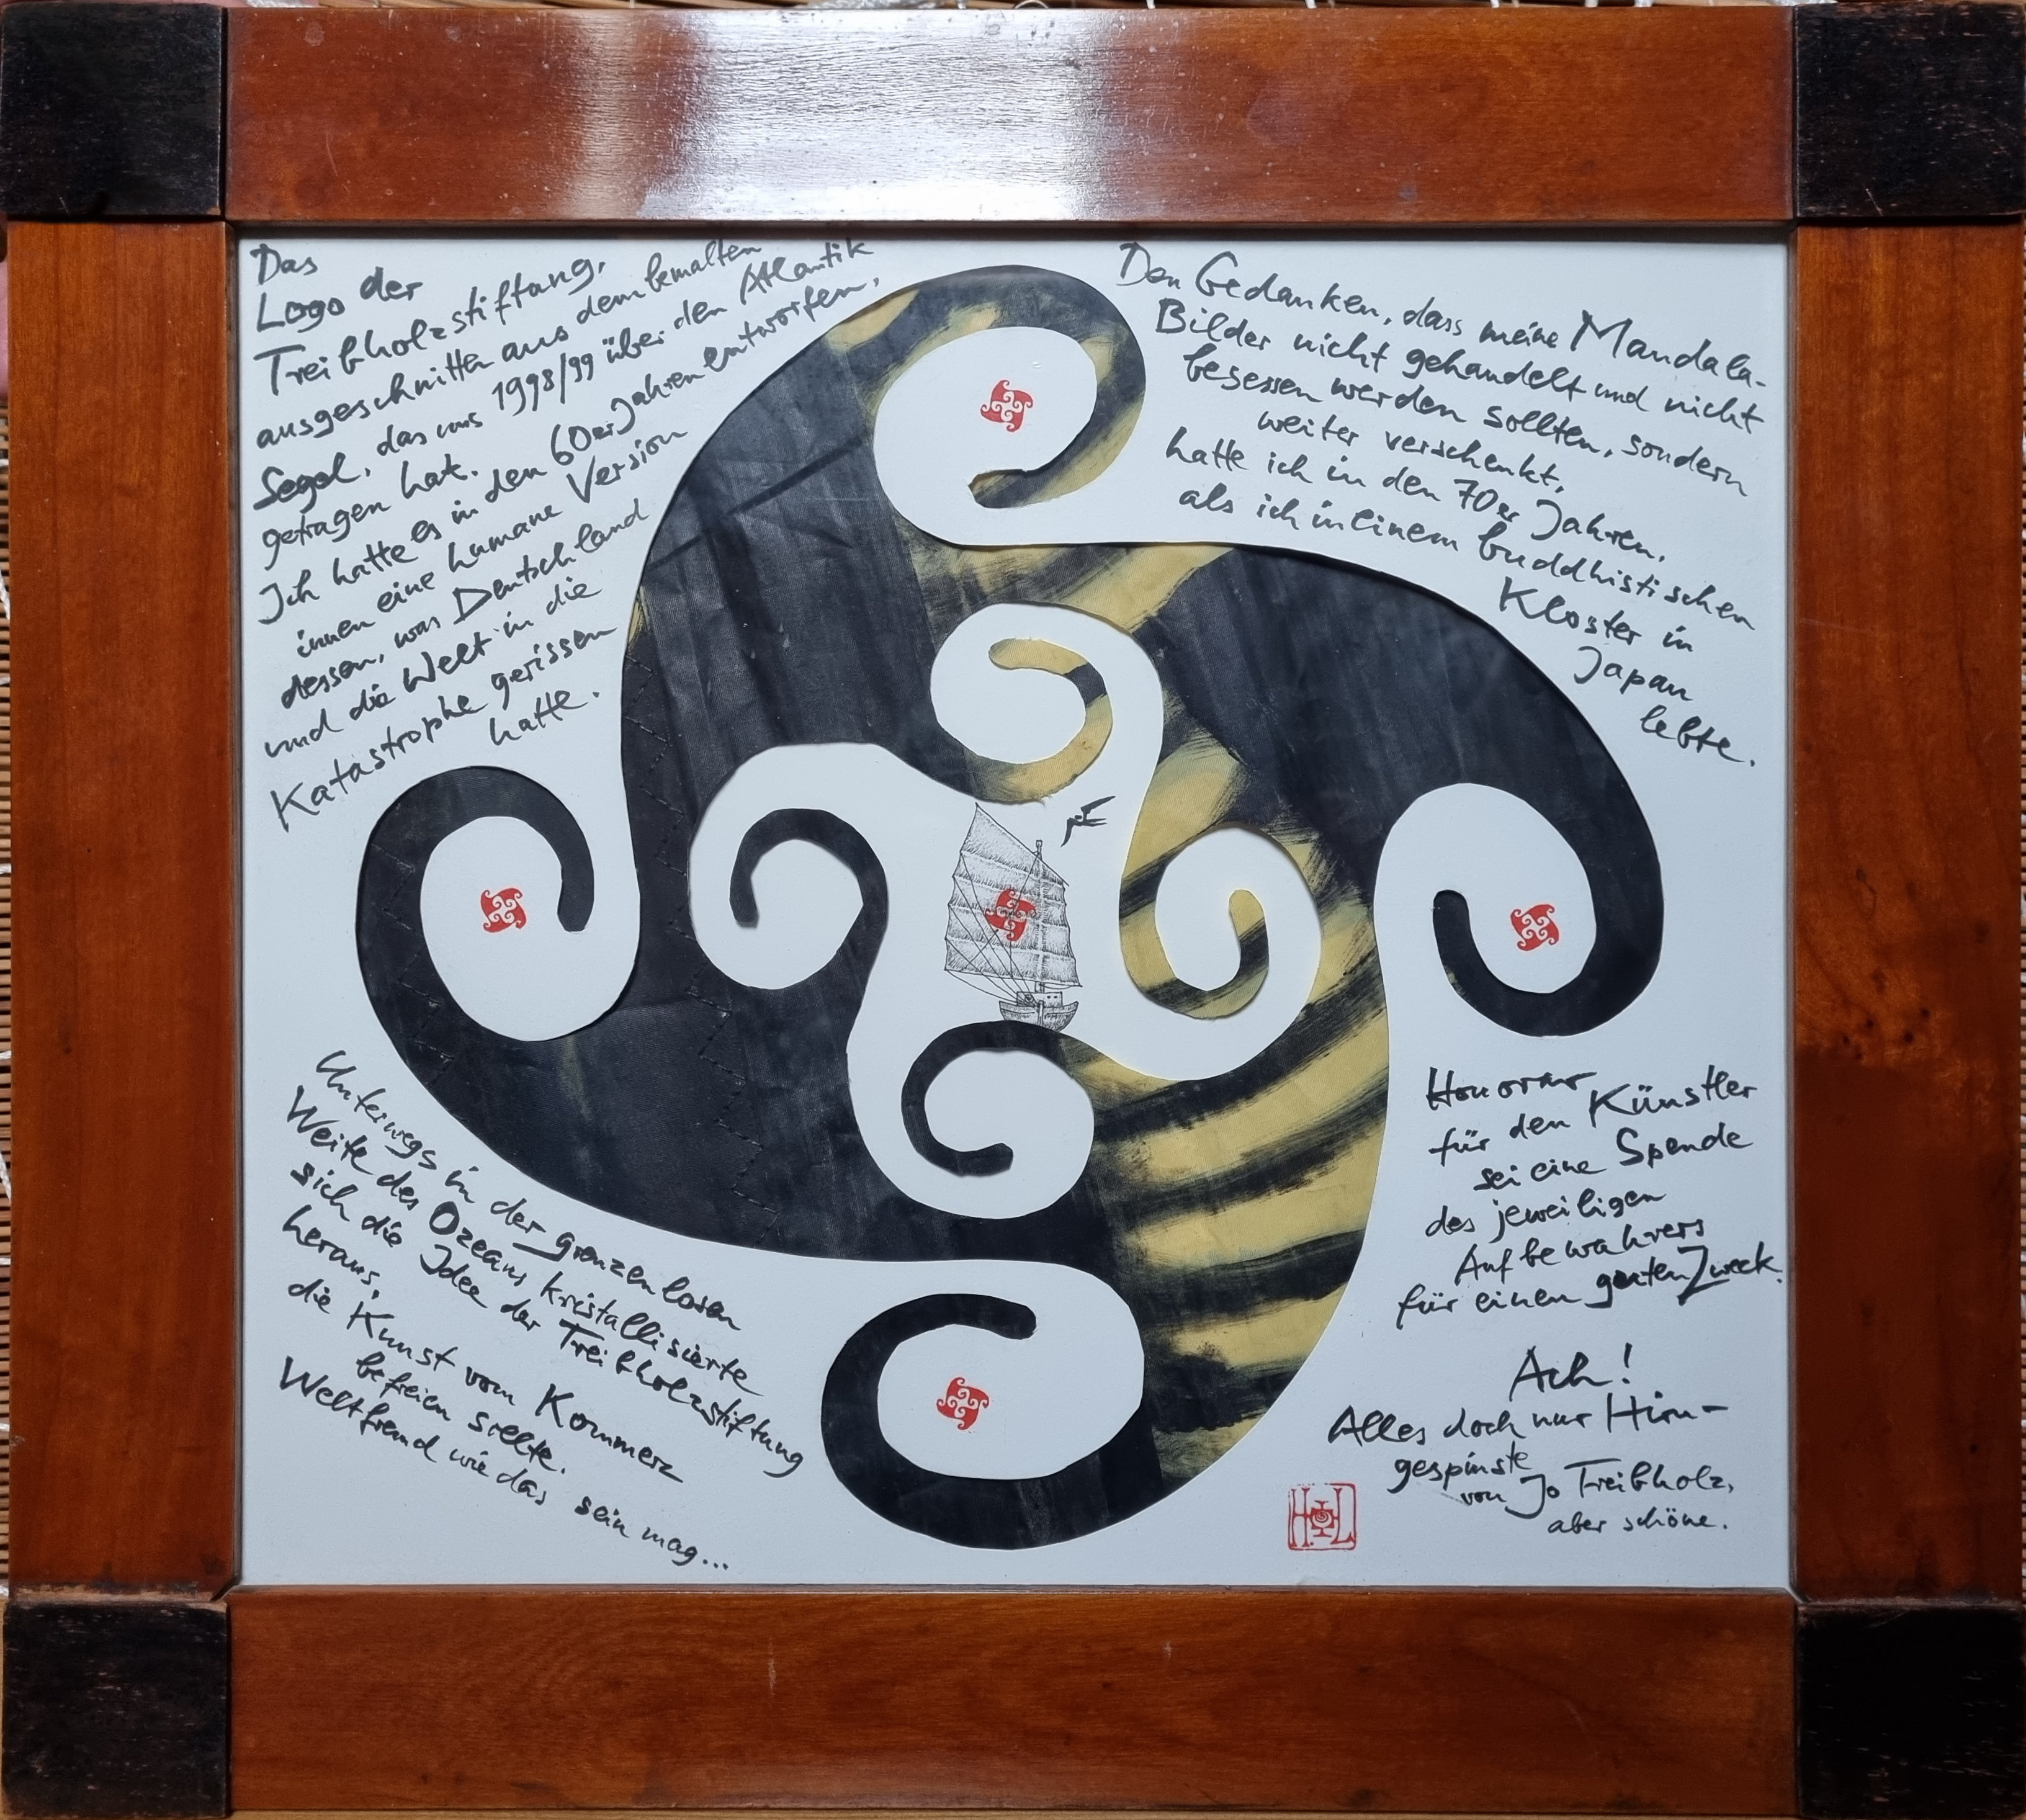 Das
Logo der
Treibholzstiftung,
ausgeschnitten aus dem bemalten
Segel, das uns 1998/99 über den Atlantik
getragen hat.
Ich hatte es in den 60er Jahren entworfen,
innen eine humane Version
dessen, was Deutschland
und die Welt in die
Katastrophe gerissen
hatte.
Den Gedanken, dass meine Mandala-
Bilder nicht gehandelt und nicht
besessen werden sollten, sondern
weiter verschenkt,
hatte ich in den 70er Jahren,
als ich in einem buddhistischen
Kloster in
Japan
lebte.
Unterwegs in der grenzenlosen
Weite des Ozeans kristallisierte
sich die Idee der Treibholzstiftung
heraus,
die Kunst vom Kommerz
befreien sollte.
Weltfremd wie das sein mag...
Honorar
für den Künstler
sei eine Spende
des jeweiligen
Aufbewahrers
für einen guten Zweck.
Ach!
Alles doch nur Hirn-
gespinste
von Jo Treibholz,
aber schöne.
H L